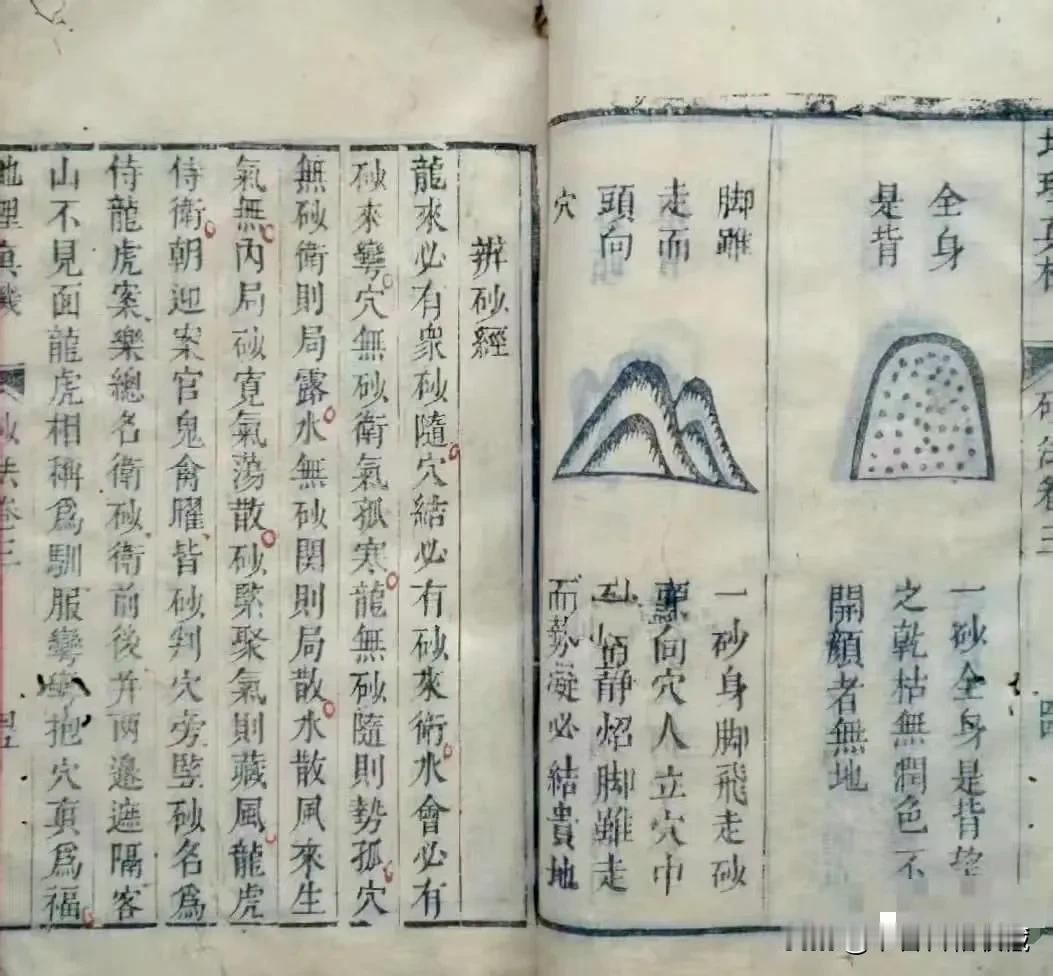 全身
是背
一砂全身是背望
之乾枯無潤色不
開顏者無地
脚雖
走而
頭向
穴
一砂身脚飛走砂
頭向穴人立穴中
情靜炤脚雖走
而凝必結貴地
辨砂經
龍來必有衆砂隨穴結必有砂來衛水會必有
砂來彎穴無砂衛氣孤寒龍無砂隨則勢孤穴
無砂衛則局露水無砂関則局散水散風來生
氣無內局砂寬氣蕩散砂緊聚氣則藏風龍虎
侍衛朝迎案官鬼禽曜皆砂判穴旁竪砂名爲
侍龍虎案樂總名衛砂衛前後并兩邊遮隔客
山不見面龍虎相稱爲馴服彎彎抱穴真爲福
地理真機 砂法卷三